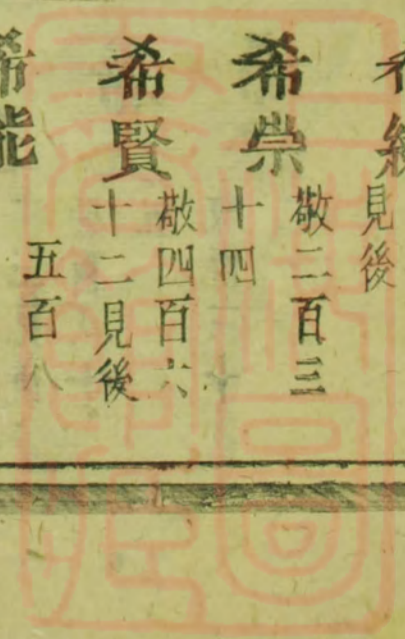 見後
希崇
敬二百三
十四
希賢
敬四百六
十二見後
希能
五百八